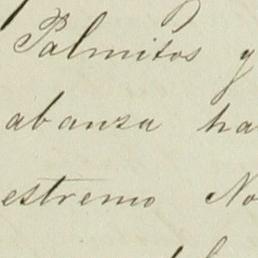 Palmitos y
abanza ha
estremo No